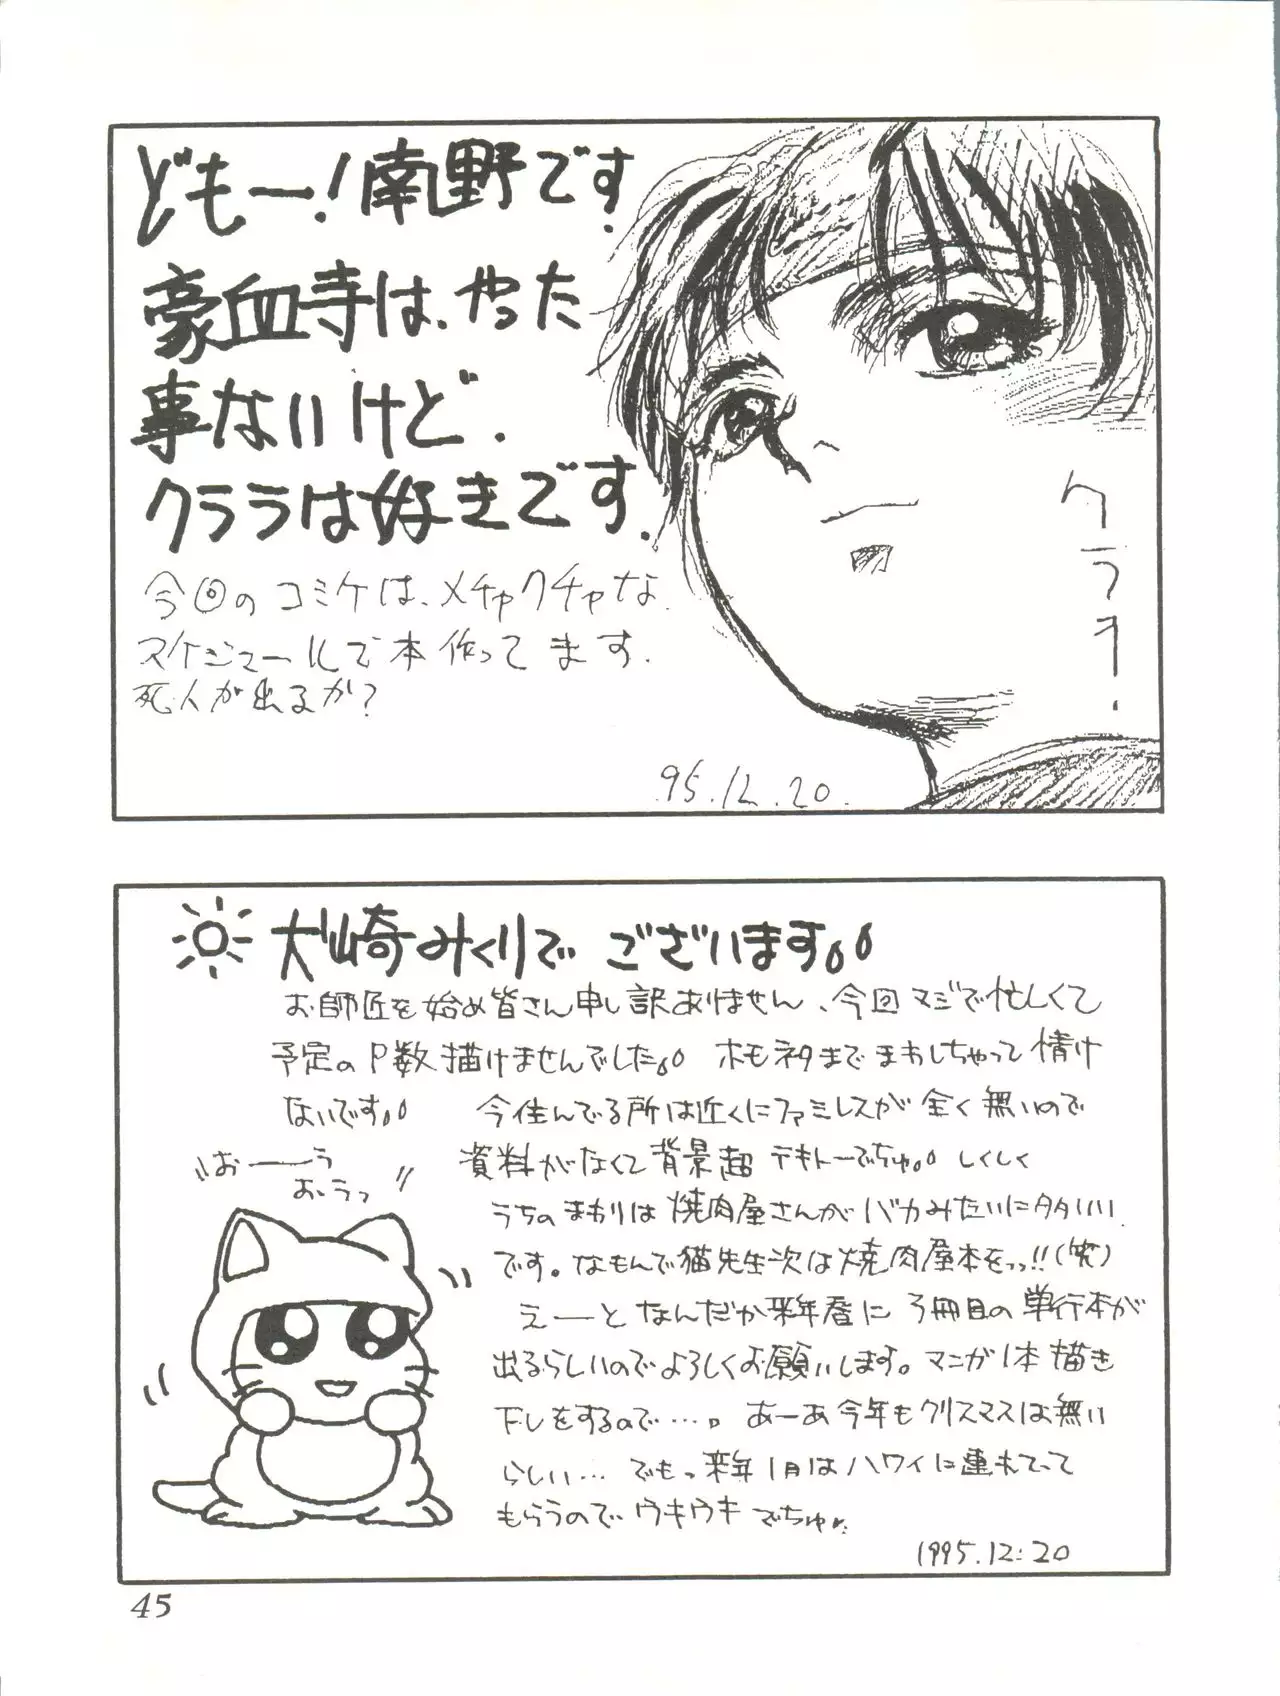 どもー!南野です
豪血寺は、やった
事ないけど、
クララは好きです.
今回のコミケは、メチャクチャな
スケジュールで本作ってます.
死人が出るか?
クララ!
95.12.20.
犬崎みくりでございます。
お師匠を始め皆さん申し訳ありません、今回マジで忙しくて
予定のP数描けませんでした。ホモネタまでまわしちゃって情け
ないです。今住んでる所は近くにファミレスが全く無いので
資料がなくて背景超テキトーでちゅ。しくしく
うちのまわりは焼肉屋さんがバカみたいにタタいい
です。なもんで猫先生次は焼肉屋本をっっ!!(笑)
えーとなんだか来年春に3冊目の単行本が
出るらしいのでよろしくお願いします。マンガ1本描き
下しをするので…。あーあ今年もクリスマスは無い
らしい… でもっ来年1月はハワイに連れてって
もらうのでウキウキでちゅ♪
1995.12.20
おーーう
おうっ
45